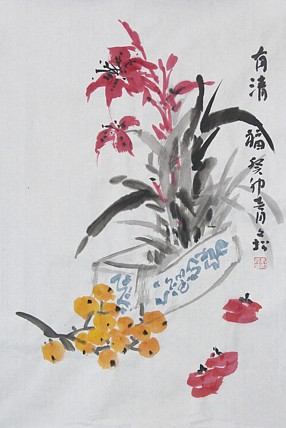 有清福 癸卯春月